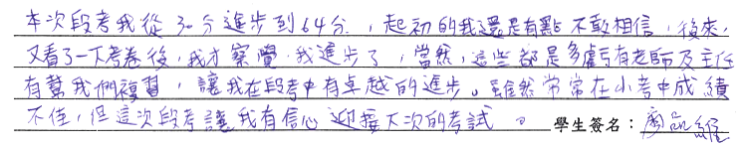 本次段考我從30分進步到64分，起初的我還是有點不敢相信，後來，
又看了一下考卷後，我才察覺我進步了，當然，這些都是多虧有老師及主任
有幫我們複習，讓我在段考中有卓越的進步。雖然常常在小考中成績
不佳，但這次段考讓我有信心迎接下次的考試。 學生簽名：廖